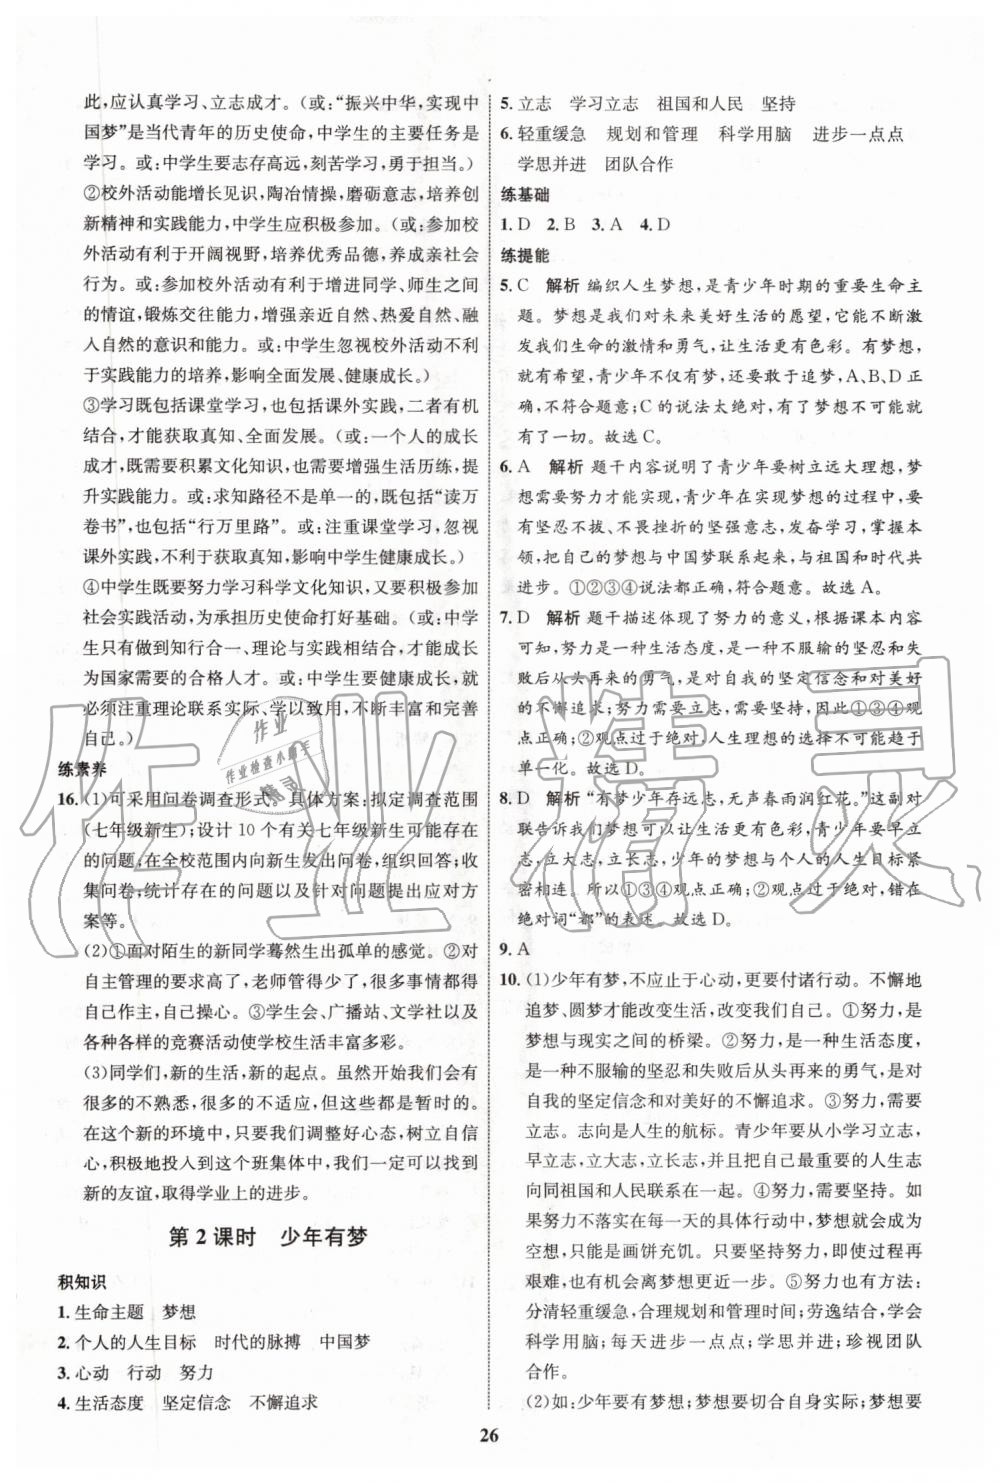 此,应认真学习、立志成才。(或:“振兴中华,实现中
国梦”是当代青年的历史使命,中学生的主要任务是
学习。或:中学生要志存高远,刻苦学习,勇于担当。)
②校外活动能增长见识,陶冶情操,磨砺意志,培养创
新精神和实践能力,中学生应积极参加。(或:参加校
外活动有利于开阔视野,培养优秀品德,养成亲社会
行为。或:参加校外活动有利于增进同学、师生之间
的情谊,锻炼交往能力,增强亲近自然、热爱自然、融
入自然的意识和能力。或:中学生忽视校外活动不利
于实践能力的培养,影响全面发展、健康成长。)
③学习既包括课堂学习,也包括课外实践,二者有机
结合,才能获取真知、全面发展。(或:一个人的成长
成才,既需要积累文化知识,也需要增强生活历练,提
升实践能力。或:求知路径不是单一的,既包括“读万
卷书”,也包括“行万里路”。或:注重课堂学习,忽视
课外实践,不利于获取真知,影响中学生健康成长。)
④中学生既要努力学习科学文化知识,又要积极参加
社会实践活动,为承担历史使命打好基础。(或:中学
生只有做到知行合一、理论与实践相结合,才能成长
为国家需要的合格人才。或:中学生要健康成长,就
必须注重理论联系实际、学以致用,不断丰富和完善
自己。)
练素养
16.(1)可采用问卷调查形式。具体方案:拟定调查范围
(七年级新生);设计 10 个有关七年级新生可能存在
的问题,在全校范围内向新生发出问卷,组织回答;收
集问卷,统计存在的问题以及针对问题提出解决方
案等。
(2)①面对陌生的新同学蓦然生出孤单的感觉。②对
自主管理的要求高了,老师管得少了,很多事情都得
自己作主,自己操心。③学生会、广播站、文学社以及
各种各样的竞赛活动使学校生活丰富多彩。
(3)同学们,新的生活,新的起点。虽然开始我们会有
很多的不熟悉,很多的不适应,但这些都是暂时的。
在这个新的环境中,只要我们调整好心态,树立自信
心,积极地投入到这个班集体中,我们一定可以找到
新的友谊,取得学业上的进步。
第 2 课时 少年有梦
积知识
1.生命主题 梦想
2.个人的人生目标 时代的脉搏 中国梦
3.心动 行动 努力
4.生活态度 坚定信念 不懈追求
5.立志 学习立志 祖国和人民 坚持
6.轻重缓急 规划和管理 科学用脑 进步一点点
学思并进 团队合作
练基础
1.D 2.B 3.A 4.D
练提能
5.C 解析 编织人生梦想,是青少年时期的重要生命主
题。梦想是我们对未来美好生活的愿望,它能不断激
发我们生命的激情和勇气,让生活更有色彩。有梦想,
就有希望,青少年不仅有梦,还要敢于追梦,A、B、D 正
确,不符合题意;C 的说法太绝对,有了梦想不可能就
有了一切。故选 C。
6.A 解析 题干内容说明了青少年要树立远大理想,梦
想需要努力才能实现,青少年在实现梦想的过程中,要
有坚忍不拔、不畏挫折的坚强意志,发奋学习,掌握本
领,把自己的梦想与中国梦联系起来,与祖国和时代共
进步。①②③④说法都正确,符合题意。故选 A。
7.D 解析 题干描述体现了努力的意义,根据课本内容
可知,努力是一种生活态度,是一种不服输的坚忍和失
败后从头再来的勇气,是对自我的坚定信念和对美好
的不懈追求;努力需要立志,需要坚持,因此①③④观
点正确;②观点过于绝对,人生理想的选择不可能趋于
单一化。故选 D。
8.D 解析 “有梦少年存远志,无声春雨润红花。”这副对
联告诉我们梦想能让生活更有色彩,青少年要早立大
志,立大志,立长志,少年的梦想与个人的人生目标紧
密相连。所以①③④观点正确;②观点过于绝对,错在
绝对词“都”的表述。故选 D。
9.A
10.(1)少年有梦,不应止于心动,更要付诸行动。不懈地
追梦、圆梦才能改变生活,改变我们自己。①努力,是
梦想与现实之间的桥梁。②努力,是一种生活态度,
是一种不服输的坚忍和失败后从头再来的勇气,是对
自我的坚定信念和对美好的不懈追求。③努力,需要
立志。志向是人生的航标。青少年要从小学习立志,
早立志,立大志,立长志,把自己最重要的人生志
向同祖国和人民联系在一起。④努力,需要坚持。如
果努力不落实在每一天的具体行动中,梦想就会成为
空想,只能是画饼充饥。只要坚持努力,即使过程再
艰难,也有机会离梦想更近一步。⑤努力也有方法:
分清轻重缓急,合理规划和管理时间;劳逸结合,学会
科学用脑;每天进步一点点;学思并进;珍视团队
合作。
(2)如:少年要有梦想;梦想要切合自身实际;梦想要
26
作业精灵
作业
作业检查小助手
精灵